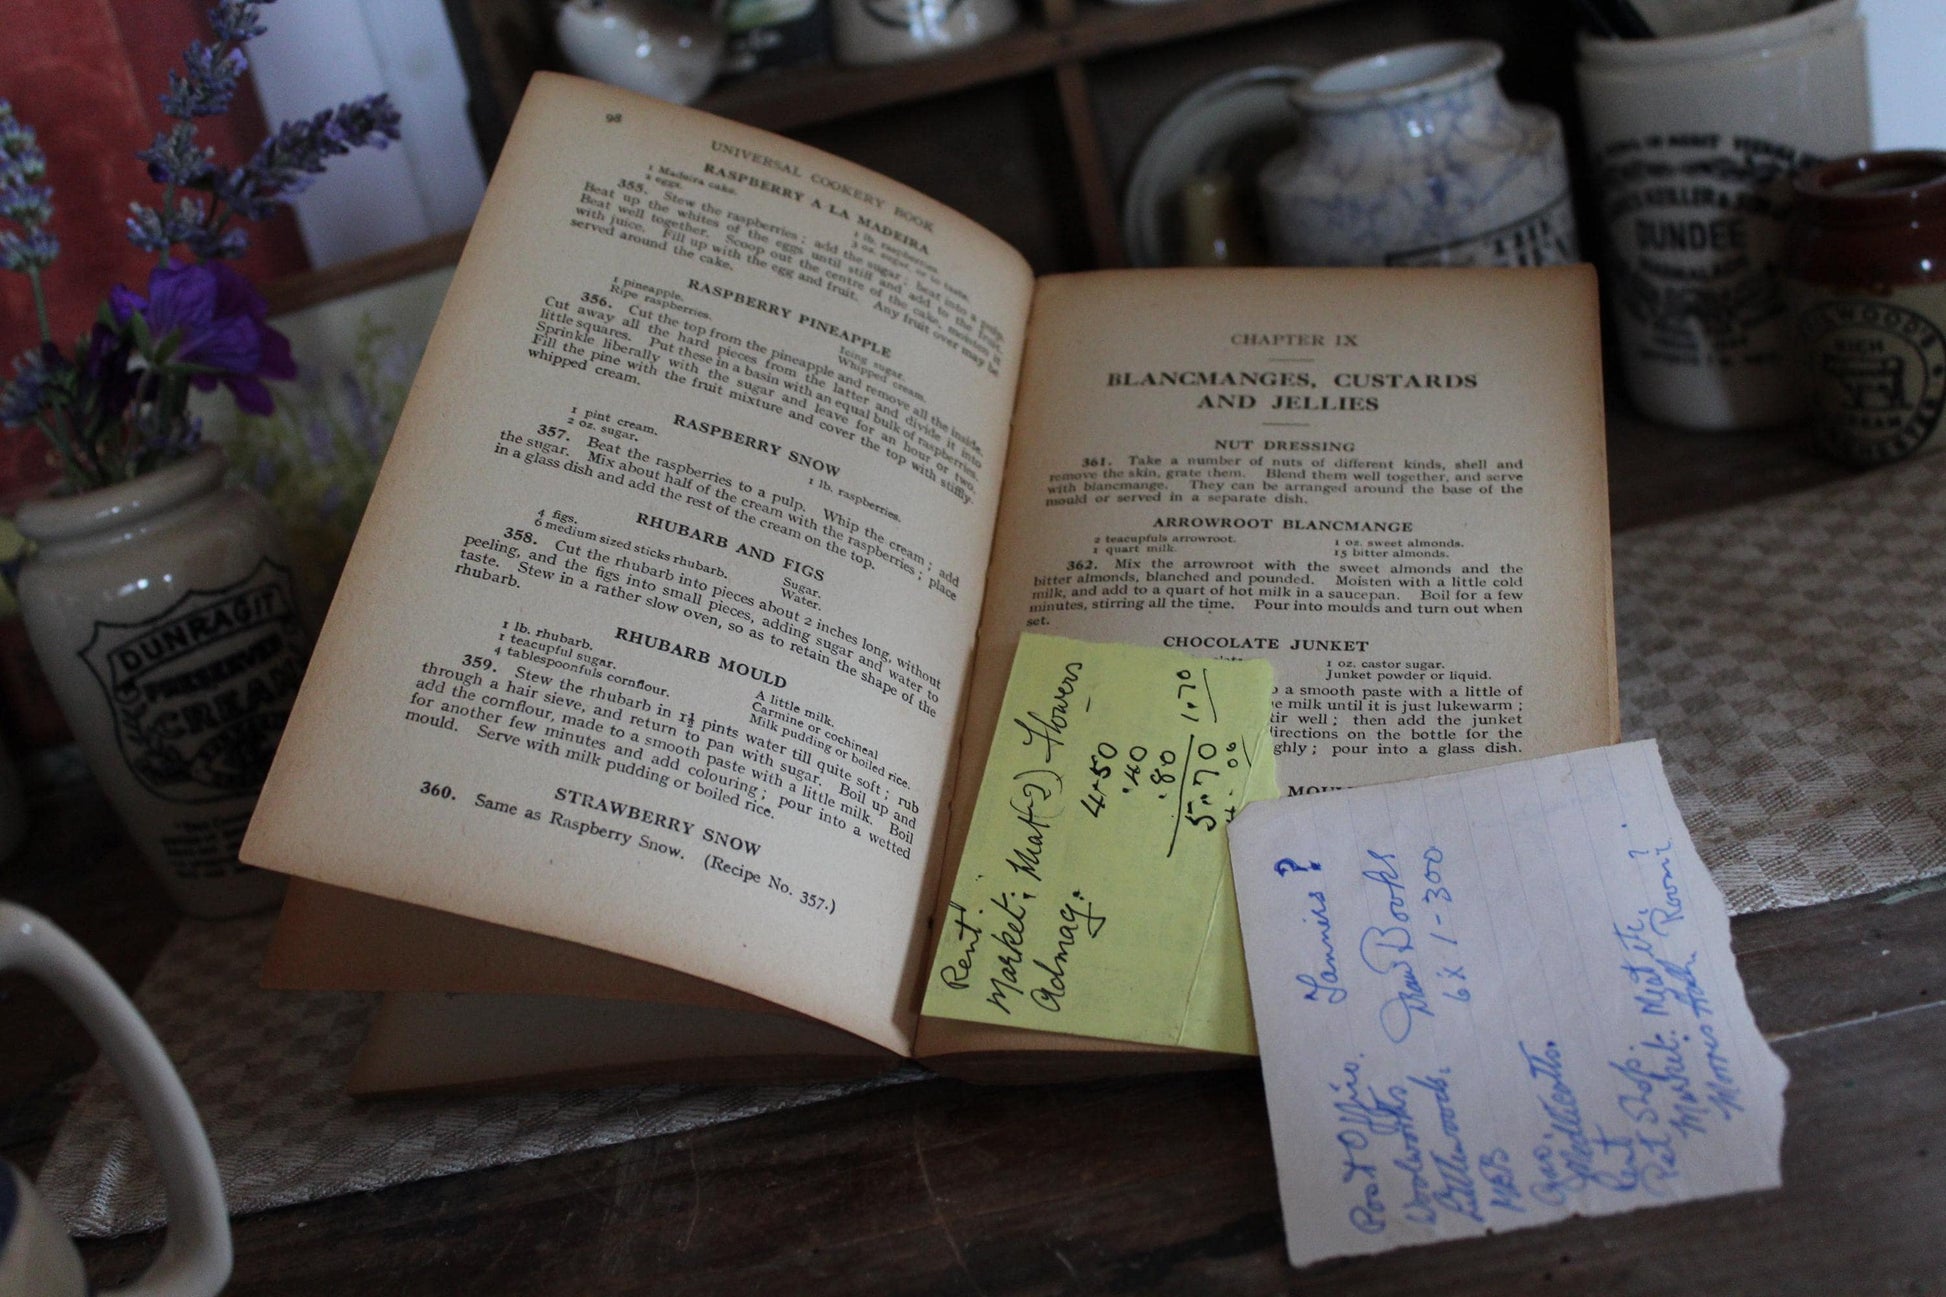 98
UNIVERSAL COOKERY BOOK
RASPBERRY A LA MADEIRA
1 Madeira cake. 1 lb. raspberries.
2 eggs. 3 oz. sugar, or to taste.
355. Stew the raspberries; add the sugar; beat into a pulp.
Beat up the whites of the eggs until stiff and add to the fruit.
Beat well together. Scoop out the centre of the cake, moisten it
with juice. Fill up with the egg and fruit. Any fruit over may be
served around the cake.
RASPBERRY PINEAPPLE
1 pineapple. Icing sugar.
Ripe raspberries. Whipped cream.
356. Cut the top from the pineapple and remove all the inside.
Cut away all the hard pieces from the latter and divide it into
little squares. Put these in a basin with an equal bulk of raspberries.
Sprinkle liberally with the sugar and leave for an hour or two.
Fill the pine with the fruit mixture and cover the top with stiffly
whipped cream.
RASPBERRY SNOW
1 pint cream. 1 lb. raspberries.
2 oz. sugar.
357. Beat the raspberries to a pulp. Whip the cream; add
the sugar. Mix about half of the cream with the raspberries; place
in a glass dish and add the rest of the cream on the top.
RHUBARB AND FIGS
4 figs. Sugar.
6 medium sized sticks rhubarb. Water.
358. Cut the rhubarb into pieces about 2 inches long, without
peeling, and the figs into small pieces, adding sugar and water to
taste. Stew in a rather slow oven, so as to retain the shape of the
rhubarb.
RHUBARB MOULD
1 lb. rhubarb. A little milk.
1 teacupful sugar. Carmine or cochineal
4 tablespoonfuls cornflour. Milk pudding or boiled rice.
359. Stew the rhubarb in 1½ pints water till quite soft; rub
through a hair sieve, and return to pan with sugar. Boil up and
add the cornflour, made to a smooth paste with a little milk. Boil
for another few minutes and add colouring; pour into a wetted
mould. Serve with milk pudding or boiled rice.
STRAWBERRY SNOW
360. Same as Raspberry Snow. (Recipe No. 357.)
CHAPTER IX
BLANCMANGES, CUSTARDS
AND JELLIES
NUT DRESSING
361. Take a number of nuts of different kinds, shell and
remove the skin, grate them. Blend them well together, and serve
with blancmange. They can be arranged around the base of the
mould or served in a separate dish.
ARROWROOT BLANCMANGE
2 teacupfuls arrowroot. 1 oz. sweet almonds.
1 quart milk. 15 bitter almonds.
362. Mix the arrowroot with the sweet almonds and the
bitter almonds, blanched and pounded. Moisten with a little cold
milk, and add to a quart of hot milk in a saucepan. Boil for a few
minutes, stirring all the time. Pour into moulds and turn out when
set.
CHOCOLATE JUNKET
1 oz. castor sugar.
Junket powder or liquid.
a smooth paste with a little of
milk until it is just lukewarm;
well; then add the junket
directions on the bottle for the
pour into a glass dish.
Rent.
Market: Meat (2) Flowers
4.50
.40
.80
5.70
1.70
Post Office. Tanners?
Woolworths. Draw Books
6 x 1-300
Rent
Pet Shop.
Market: Meat
Morris Hall Room?
DUNRAGIT
PRESERVED
CREAM
KEILLER &
DUNDEE
RICH
CREAM